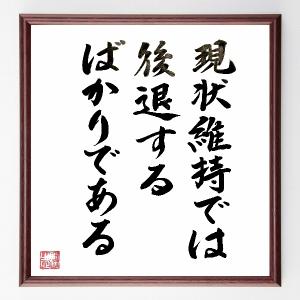 現状維持では
後退する
ばかりである